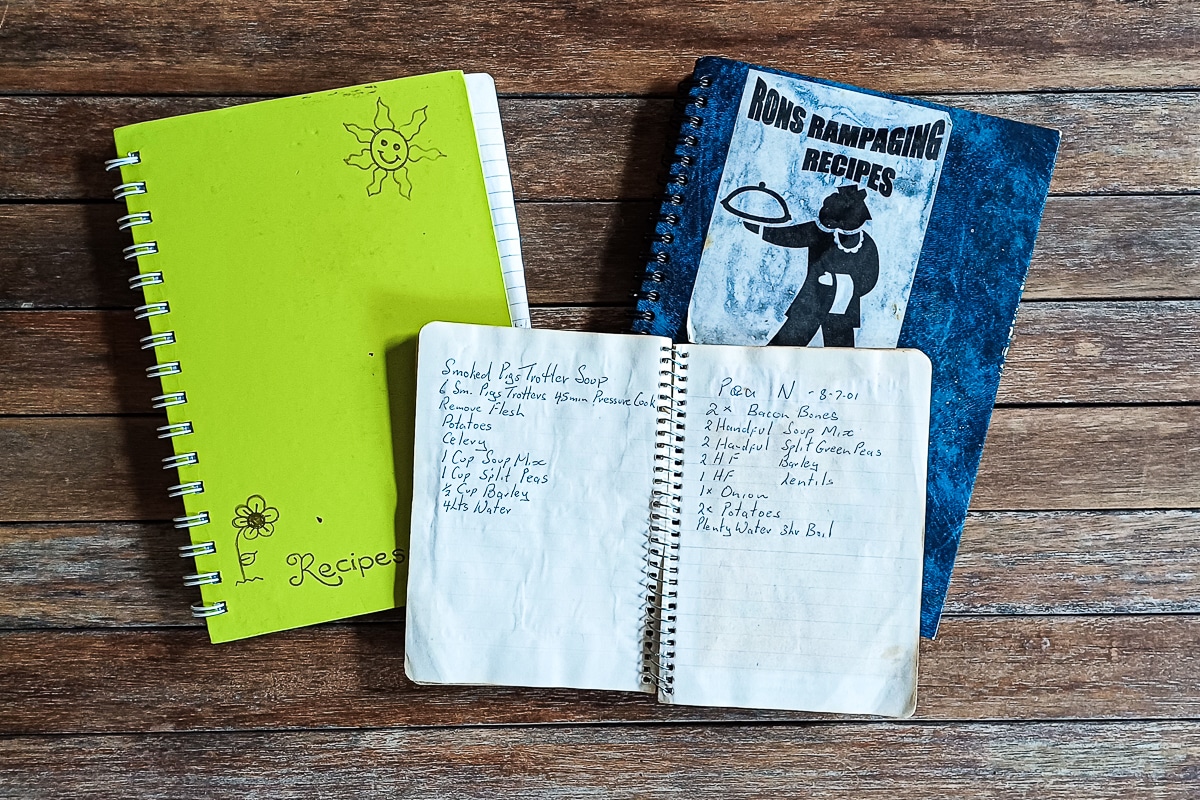 Recipes
RONS RAMPAGING
RECIPES
Smoked Pigs Trotter Soup
6 Sm. Pigs Trotters 45min Pressure Cook
Remove Flesh
Potatoes
Celery
1 Cup Soup Mix
1 Cup Split Peas
½ Cup Barley
4Lts Water
Pea N - 8-7-01
2 x Bacon Bones
2 Handful Soup Mix
2 Handful Split Green Peas
2 HF Barley
1 HF Lentils
1x Onion
2x Potatoes
Plenty Water 3hr Boil